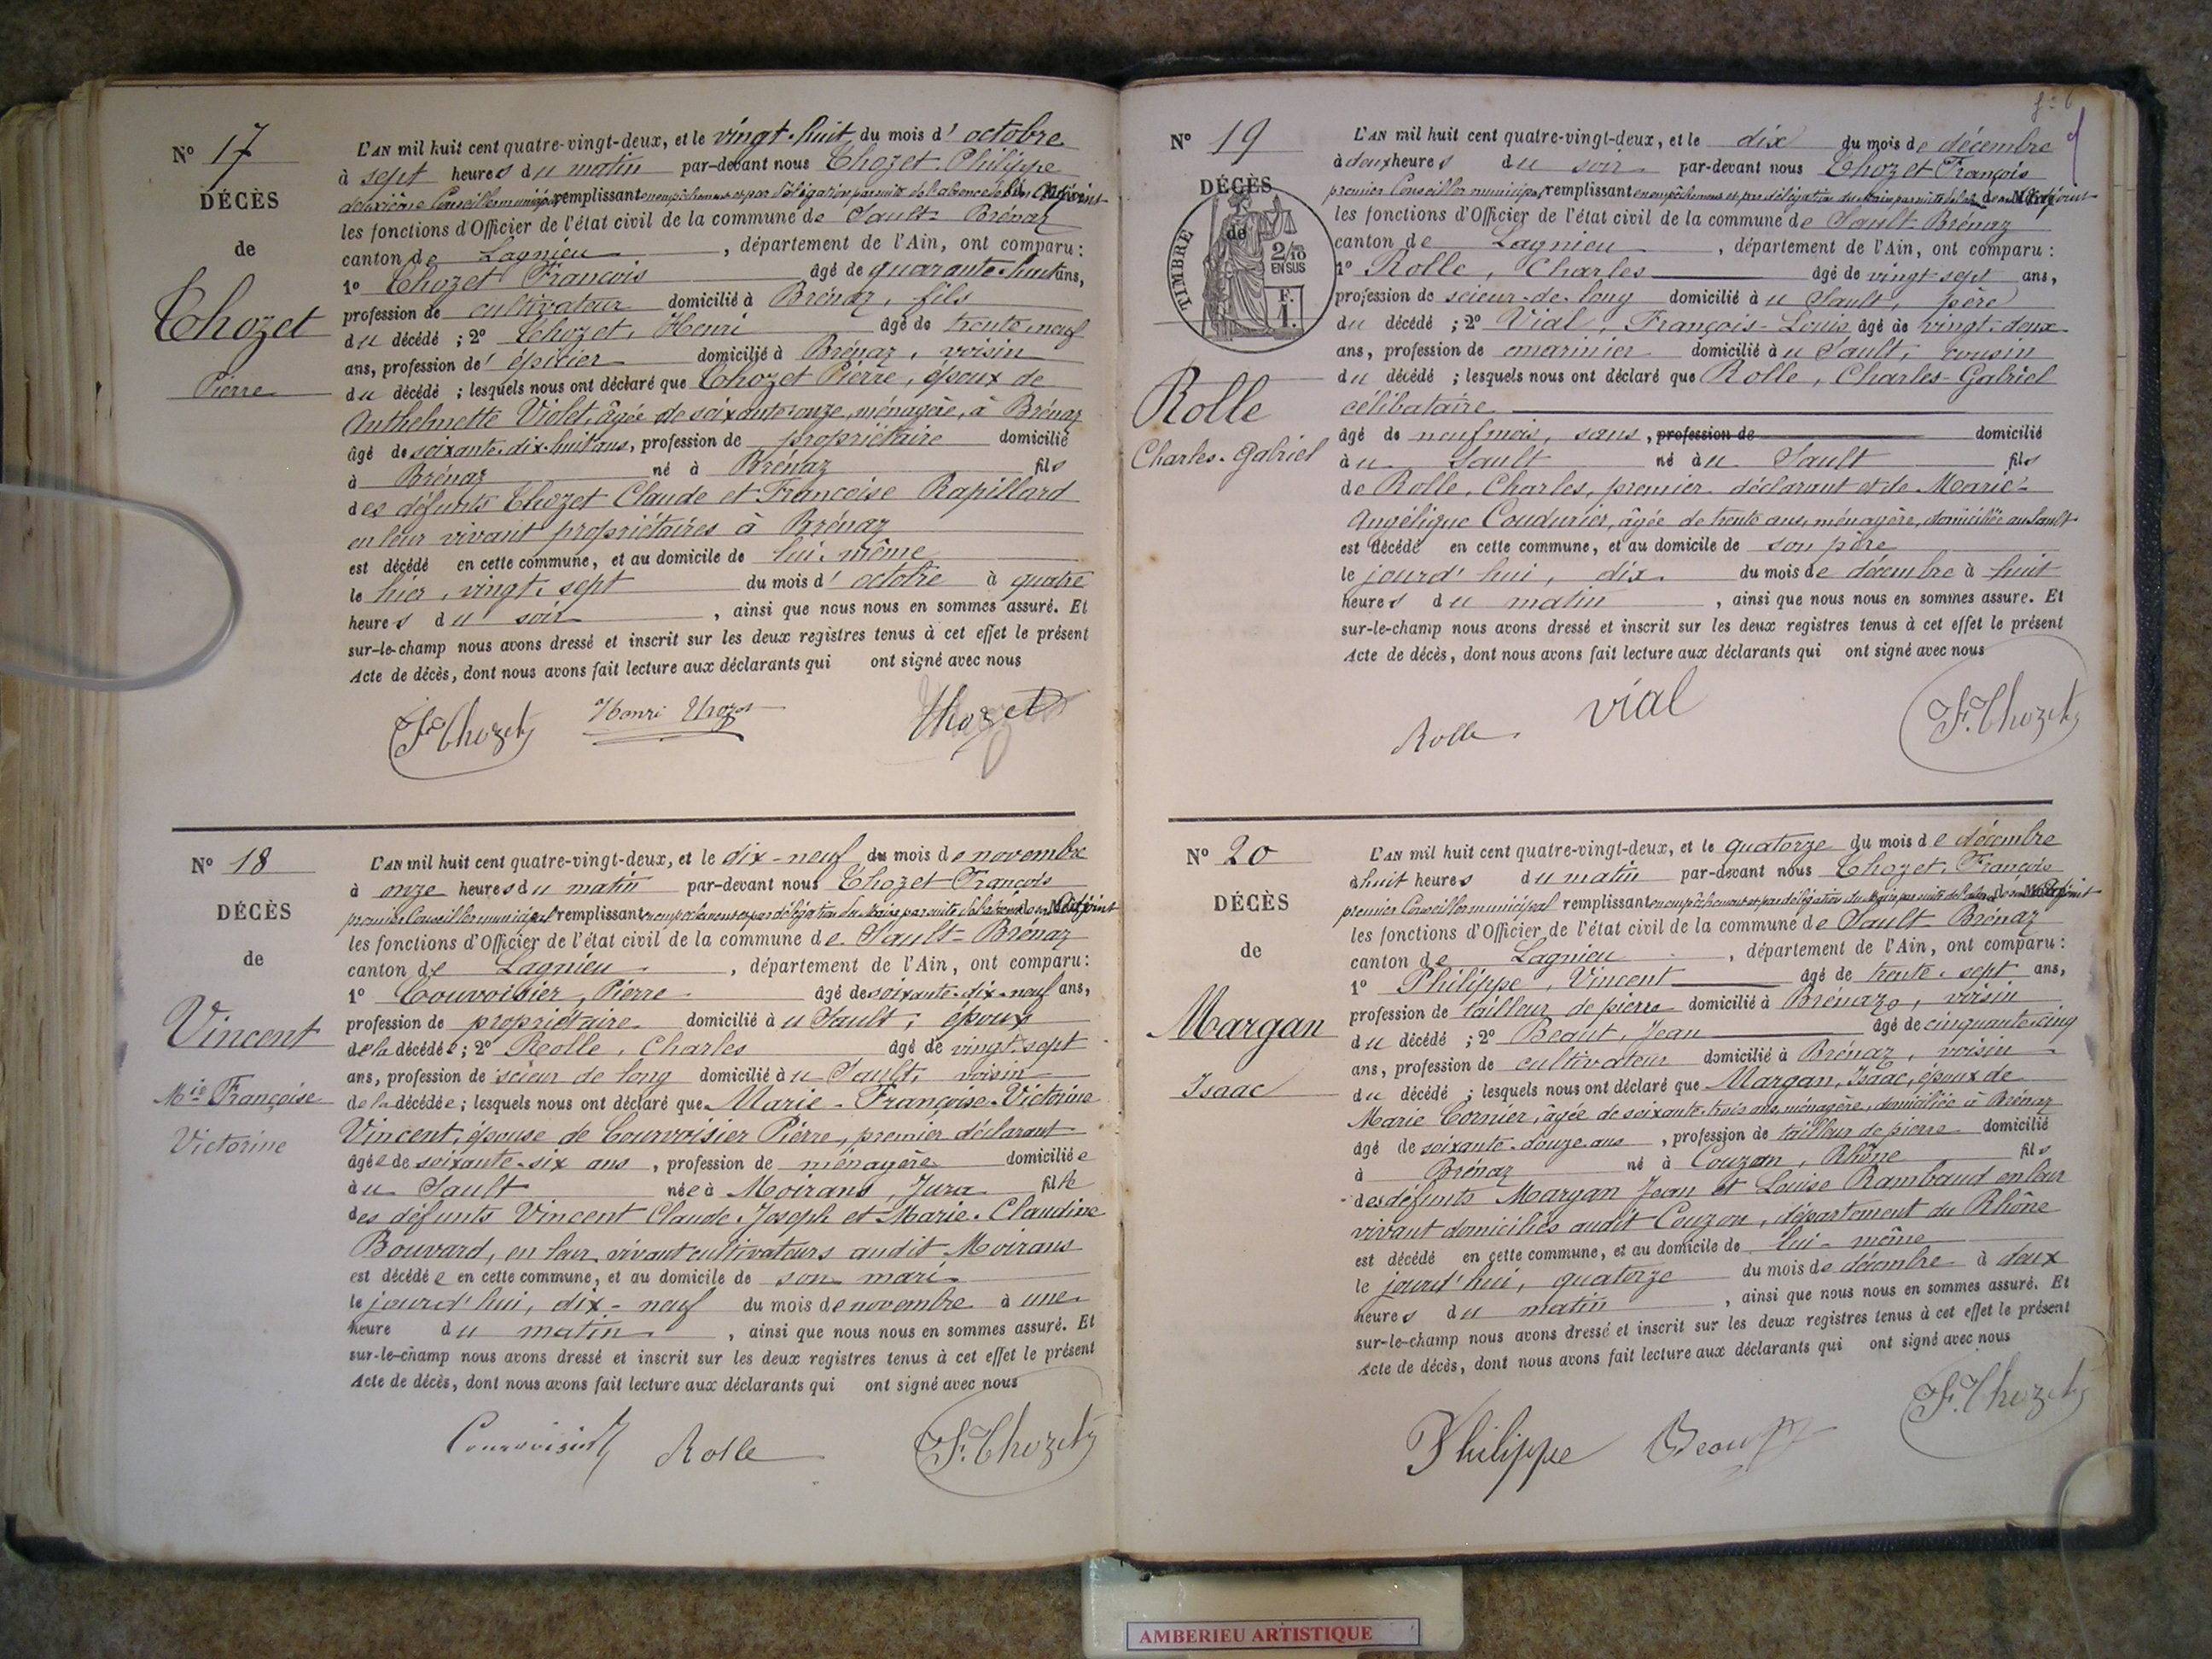 N° 17
DÉCÈS
de
Thozet
Pierre
L'AN mil huit cent quatre-vingt-deux, et le vingt-huit du mois d'octobre
à sept heures du matin par-devant nous Thozet Philippe
deuxième Conseiller municipal remplissant en empêchement et par délégation par suite de l'absence
les fonctions d'Officier de l'état civil de la commune de Sault-Brénaz
canton de Lagnieu, département de l'Ain, ont comparu :
1° Thozet François âgé de quarante-huit ans,
profession de cultivateur domicilié à Brénaz, fils
du décédé ; 2° Thozet, Henri âgé de trente neuf
ans, profession d'épicier domicilié à Brénaz, voisin
du décédé ; lesquels nous ont déclaré que Thozet Pierre, époux de
Anthelmette Violet, âgée de soixante onze, ménagère, à Brénaz
âgé de soixante-dix-huit ans, profession de propriétaire domicilié
à Brénaz né à Brénaz fils
des défunts Thozet Claude et Françoise Rapillard
en leur vivant propriétaires à Brénaz
est décédé en cette commune, et au domicile de lui-même
le hier, vingt-sept du mois d'octobre à quatre
heures du soir, ainsi que nous nous en sommes assuré. Et
sur-le-champ nous avons dressé et inscrit sur les deux registres tenus à cet effet le présent
Acte de décès, dont nous avons fait lecture aux déclarants qui ont signé avec nous
F. Thozet Henri Thozet Thozet
N° 18
DÉCÈS
de
Vincent
Mie Françoise
Victorine
L'AN mil huit cent quatre-vingt-deux, et le dix-neuf du mois de novembre
à onze heures du matin par-devant nous Thozet François
premier Conseiller municipal remplissant en empêchement et par délégation du Maire par suite de l'absence de son Adjoint
les fonctions d'Officier de l'état civil de la commune de Sault-Brénaz
canton de Lagnieu, département de l'Ain, ont comparu :
1° Courvoisier, Pierre âgé de soixante-dix-neuf ans,
profession de propriétaire domicilié à u Sault ; époux
de la décédée ; 2° Rolle, Charles âgé de vingt-sept
ans, profession de scieur de long domicilié à u Sault, voisin
de la décédée ; lesquels nous ont déclaré que Marie-Françoise-Victorine
Vincent, épouse de Courvoisier Pierre, premier déclarant
âgée de soixante-six ans, profession de ménagère domiciliée
à u Sault née à Moirans, Jura fille
des défunts Vincent Claude-Joseph et Marie-Claudine
Bouvard, en leur vivant cultivateurs audit Moirans
est décédée en cette commune, et au domicile de son mari
le jourd'hui, dix-neuf du mois de novembre à une
heure du matin, ainsi que nous nous en sommes assuré. Et
sur-le-champ nous avons dressé et inscrit sur les deux registres tenus à cet effet le présent
Acte de décès, dont nous avons fait lecture aux déclarants qui ont signé avec nous
Courvoisier Rolle F. Thozet
N° 19
DÉCÈS
de
TIMBRE
2/10
EN SUS
F.
1.
Rolle
Charles-Gabriel
L'AN mil huit cent quatre-vingt-deux, et le dix du mois de décembre
à deux heures du soir par-devant nous Thozet François
premier Conseiller municipal, remplissant en empêchement et par délégation du Maire par suite de son Adjoint
les fonctions d'Officier de l'état civil de la commune de Sault-Brénaz
canton de Lagnieu, département de l'Ain, ont comparu :
1° Rolle, Charles âgé de vingt-sept ans,
profession de scieur-de-long domicilié à u Sault, père
du décédé ; 2° Vial, François-Louis âgé de vingt-deux
ans, profession de marinier domicilié à u Sault ; cousin
du décédé ; lesquels nous ont déclaré que Rolle, Charles-Gabriel
célibataire
âgé de neuf mois, sans, profession de domicilié
à u Sault né à u Sault fils
de Rolle, Charles, premier déclarant et de Marie-
Angélique Coudurier, âgée de trente ans, ménagère, domiciliée au Sault
est décédé en cette commune, et au domicile de son père
le jourd'hui, dix du mois de décembre à huit
heures du matin, ainsi que nous nous en sommes assuré. Et
sur-le-champ nous avons dressé et inscrit sur les deux registres tenus à cet effet le présent
Acte de décès, dont nous avons fait lecture aux déclarants qui ont signé avec nous
Rolle Vial F. Thozet
N° 20
DÉCÈS
de
Margan
Isaac
L'AN mil huit cent quatre-vingt-deux, et le quatorze du mois de décembre
à huit heures du matin par-devant nous Thozet François
premier Conseiller municipal remplissant en empêchement et par délégation du Maire par suite de l'absence de son Adjoint
les fonctions d'Officier de l'état civil de la commune de Sault-Brénaz
canton de Lagnieu, département de l'Ain, ont comparu :
1° Philippe, Vincent âgé de trente-sept ans,
profession de tailleur de pierre domicilié à Brénaz, voisin
du décédé ; 2° Beaut, Jean âgé de cinquante-cinq
ans, profession de cultivateur domicilié à Brénaz, voisin
du décédé ; lesquels nous ont déclaré que Margan, Isaac, époux de
Marie Cornier, âgée de soixante-trois ans, ménagère, domiciliée à Brénaz
âgé de soixante-douze ans, profession de tailleur de pierre domicilié
à Brénaz né à Couzon, Rhône fils
des défunts Margan Jean et Louise Rambaud en leur
vivant domiciliés audit Couzon, département du Rhône
est décédé en cette commune, et au domicile de lui-même
le jourd'hui, quatorze du mois de décembre à deux
heures du matin, ainsi que nous nous en sommes assuré. Et
sur-le-champ nous avons dressé et inscrit sur les deux registres tenus à cet effet le présent
Acte de décès, dont nous avons fait lecture aux déclarants qui ont signé avec nous
Philippe Beaut F. Thozet
AMBERIEU ARTISTIQUE